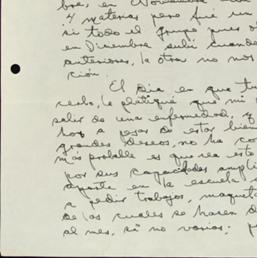 bre, en Noviembre
4 materias pero fue un
si todo el grupo pues
en Diciembre subí cuando
anteriores, la otra no nos
ción.
El día en que
recho, le platiqué que mi
salir de una enfermedad, y
hoy a pesar de estar bien
grandes deseos, no ha
más probable es que sea este
por sus capacidades
aparte en la escuela
a pedir trabajos,
de los cuales se hacen
al mes, si no varios: